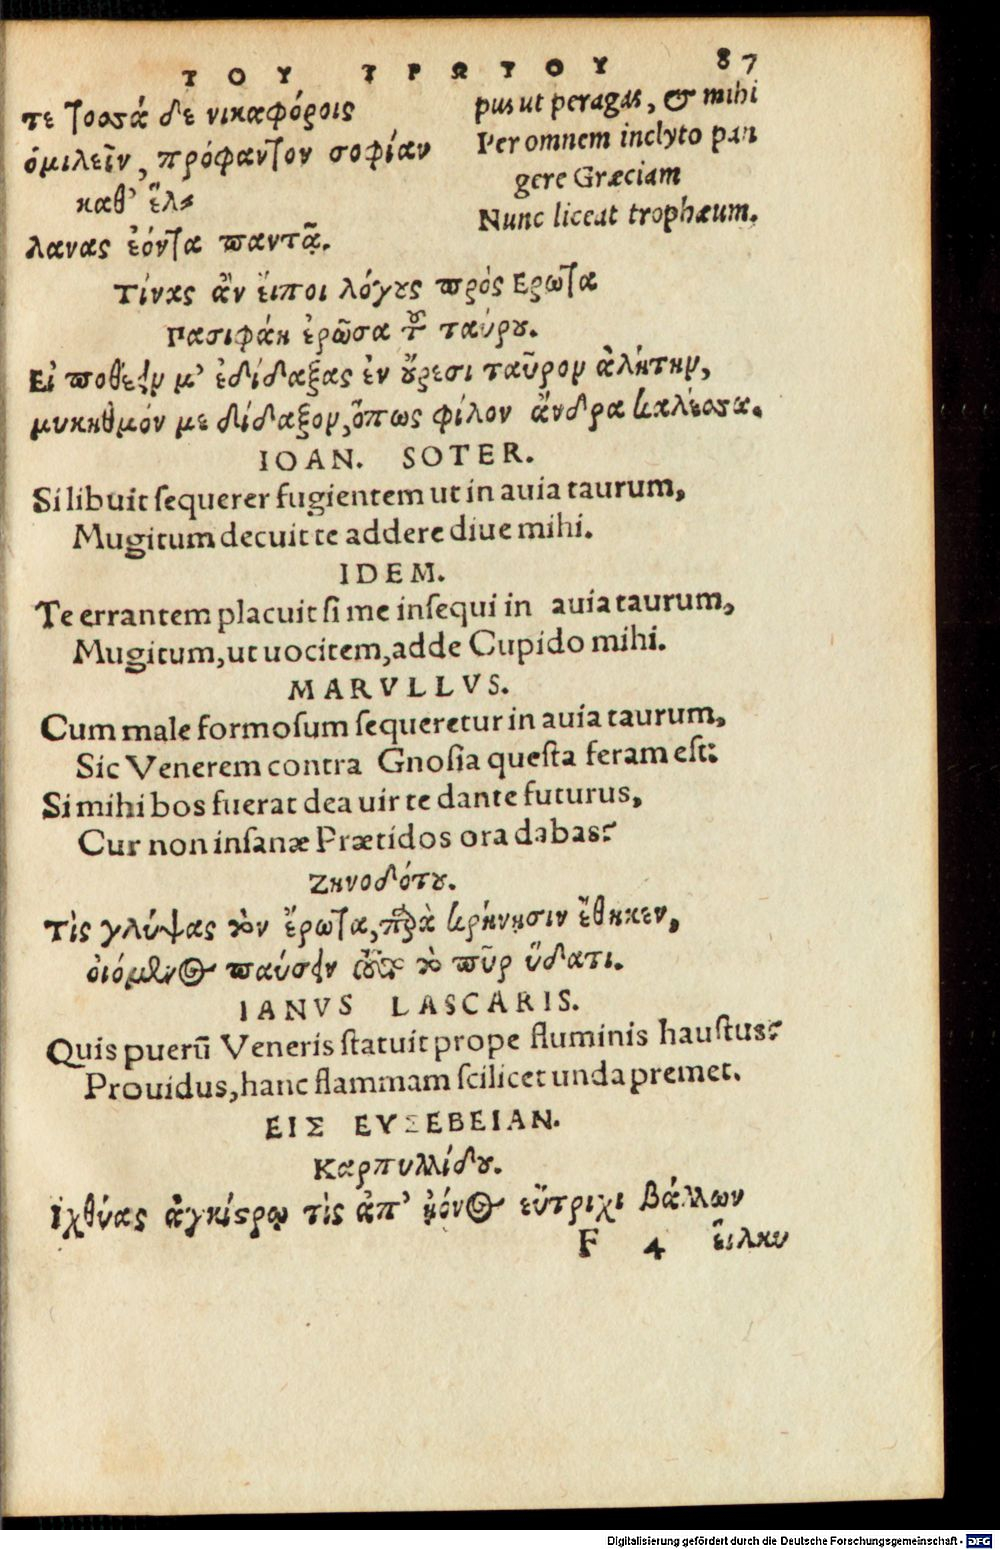 ΤΟΥ ΤΡΩΤΟΥ 87
τε τοσσά δε νικαφόροις
ὁμιλεῖν, πρόφαντον σοφίαν
καθ' ἕλ-
λανας ἐόντα παντᾷ.
pus ut peragas, & mihi
Per omnem inclyto pan
gere Græciam
Nunc liceat trophæum.
Τίνας ἂν εἴποι λόγους πρὸς Ερωτα
Πασιφάη ἐρῶσα τοῦ ταύρου.
Εἰ ποθέειν μ' ἐδίδαξας ἐν οὔρεσι ταῦρον ἀλήτην,
μυκηθμόν με δίδαξον, ὅπως φίλον ἄνδρα καλέσσα.
IOAN. SOTER.
Si libuit sequerer fugientem ut in auia taurum,
Mugitum decuit te addere diue mihi.
IDEM.
Te errantem placuit si me insequi in auia taurum,
Mugitum, ut uocitem, adde Cupido mihi.
MARVLLVS.
Cum male formosum sequeretur in auia taurum,
Sic Venerem contra Gnosia questa feram est:
Si mihi bos fuerat dea uir te dante futurus,
Cur non insanæ Prætidos ora dabas?
Ζηνοδότου.
Τὶς γλύψας τὸν ἔρωτα, παρὰ κρήνησιν ἔθηκεν,
οἰόμενος παύσειν τοῦτο τὸ πῦρ ὕδατι.
IANVS LASCARIS.
Quis puerũ Veneris statuit prope fluminis haustus?
Prouidus, hanc flammam scilicet unda premet.
ΕΙΣ ΕΥΣΕΒΕΙΑΝ.
Καρπυλλίδου.
Ἰχθύας ἀγκίστρῳ τὶς ἀπ' ἠόνος εὔτριχι βάλλων
F 4 εἵλκυ
Digitalisierung gefördert durch die Deutsche Forschungsgemeinschaft - DFG